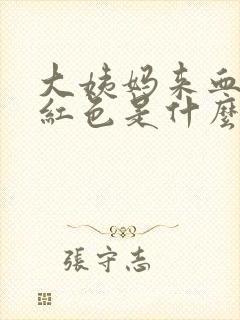 大姨妈来血
紅色是什麼
張守志